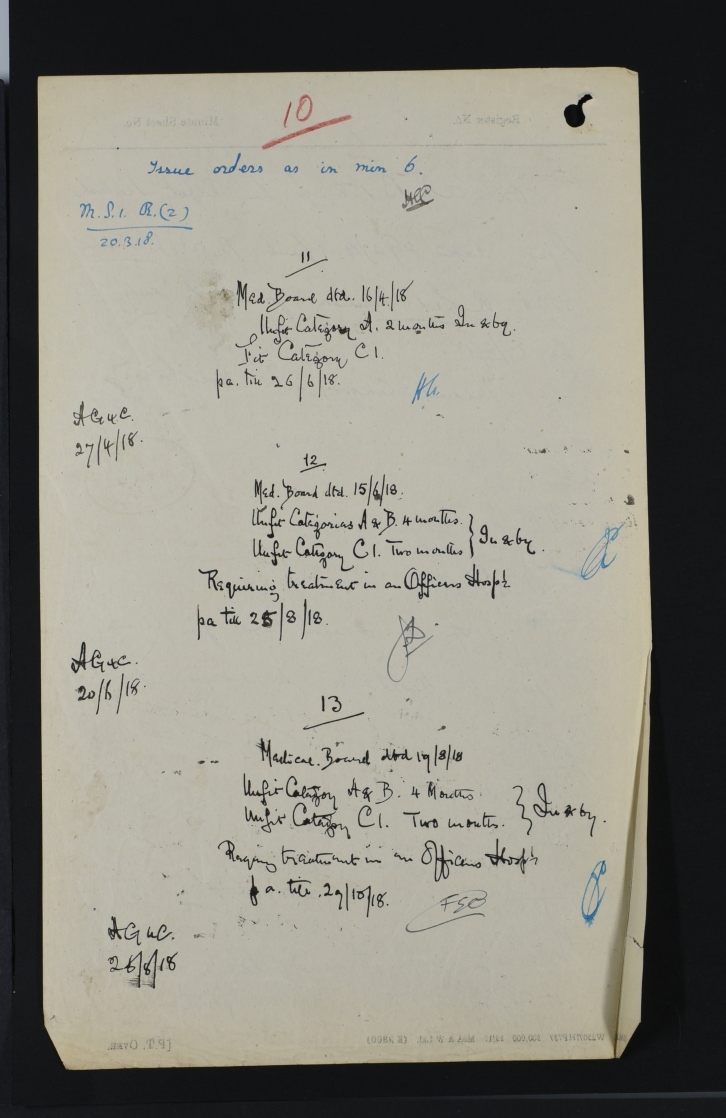 10
Issue orders as in min 6.
M.S.1. R.(2)
20.3.18.
11
Med. Board dtd. 16/4/18
Unfit Category A. 2 months
Fit Category C1.
pa. till 26/6/18.
AG4c.
27/4/18.
12
Med. Board dtd. 15/6/18.
Unfit Categories A & B. 4 months.
Unfit Category C1. Two months
Requiring treatment in an Officers Hospl
pa till 25/8/18.
AG4c.
20/6/18.
13
Medical Board dtd 19/8/18
Unfit Category A & B. 4 Months.
Unfit Category C1. Two months.
treatment in an Officers Hospl
pa. till 29/10/18.
AG4C.
26/8/18